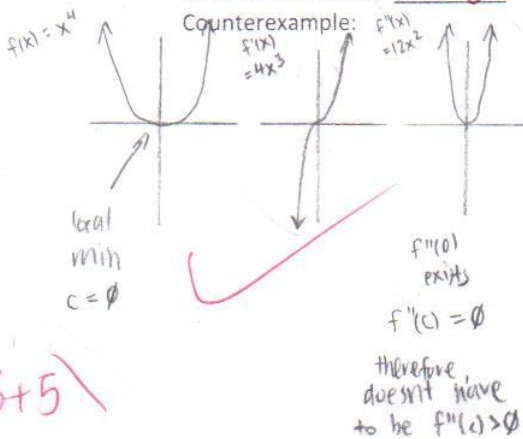 Counterexample:
f(x) = x⁴
f'(x)
= 4x³
f"(x)
= 12x²
local
min
c = Ø
f"(0)
exists
f"(c) = Ø
therefore
doesnt have
to be f"(c) > Ø
+5